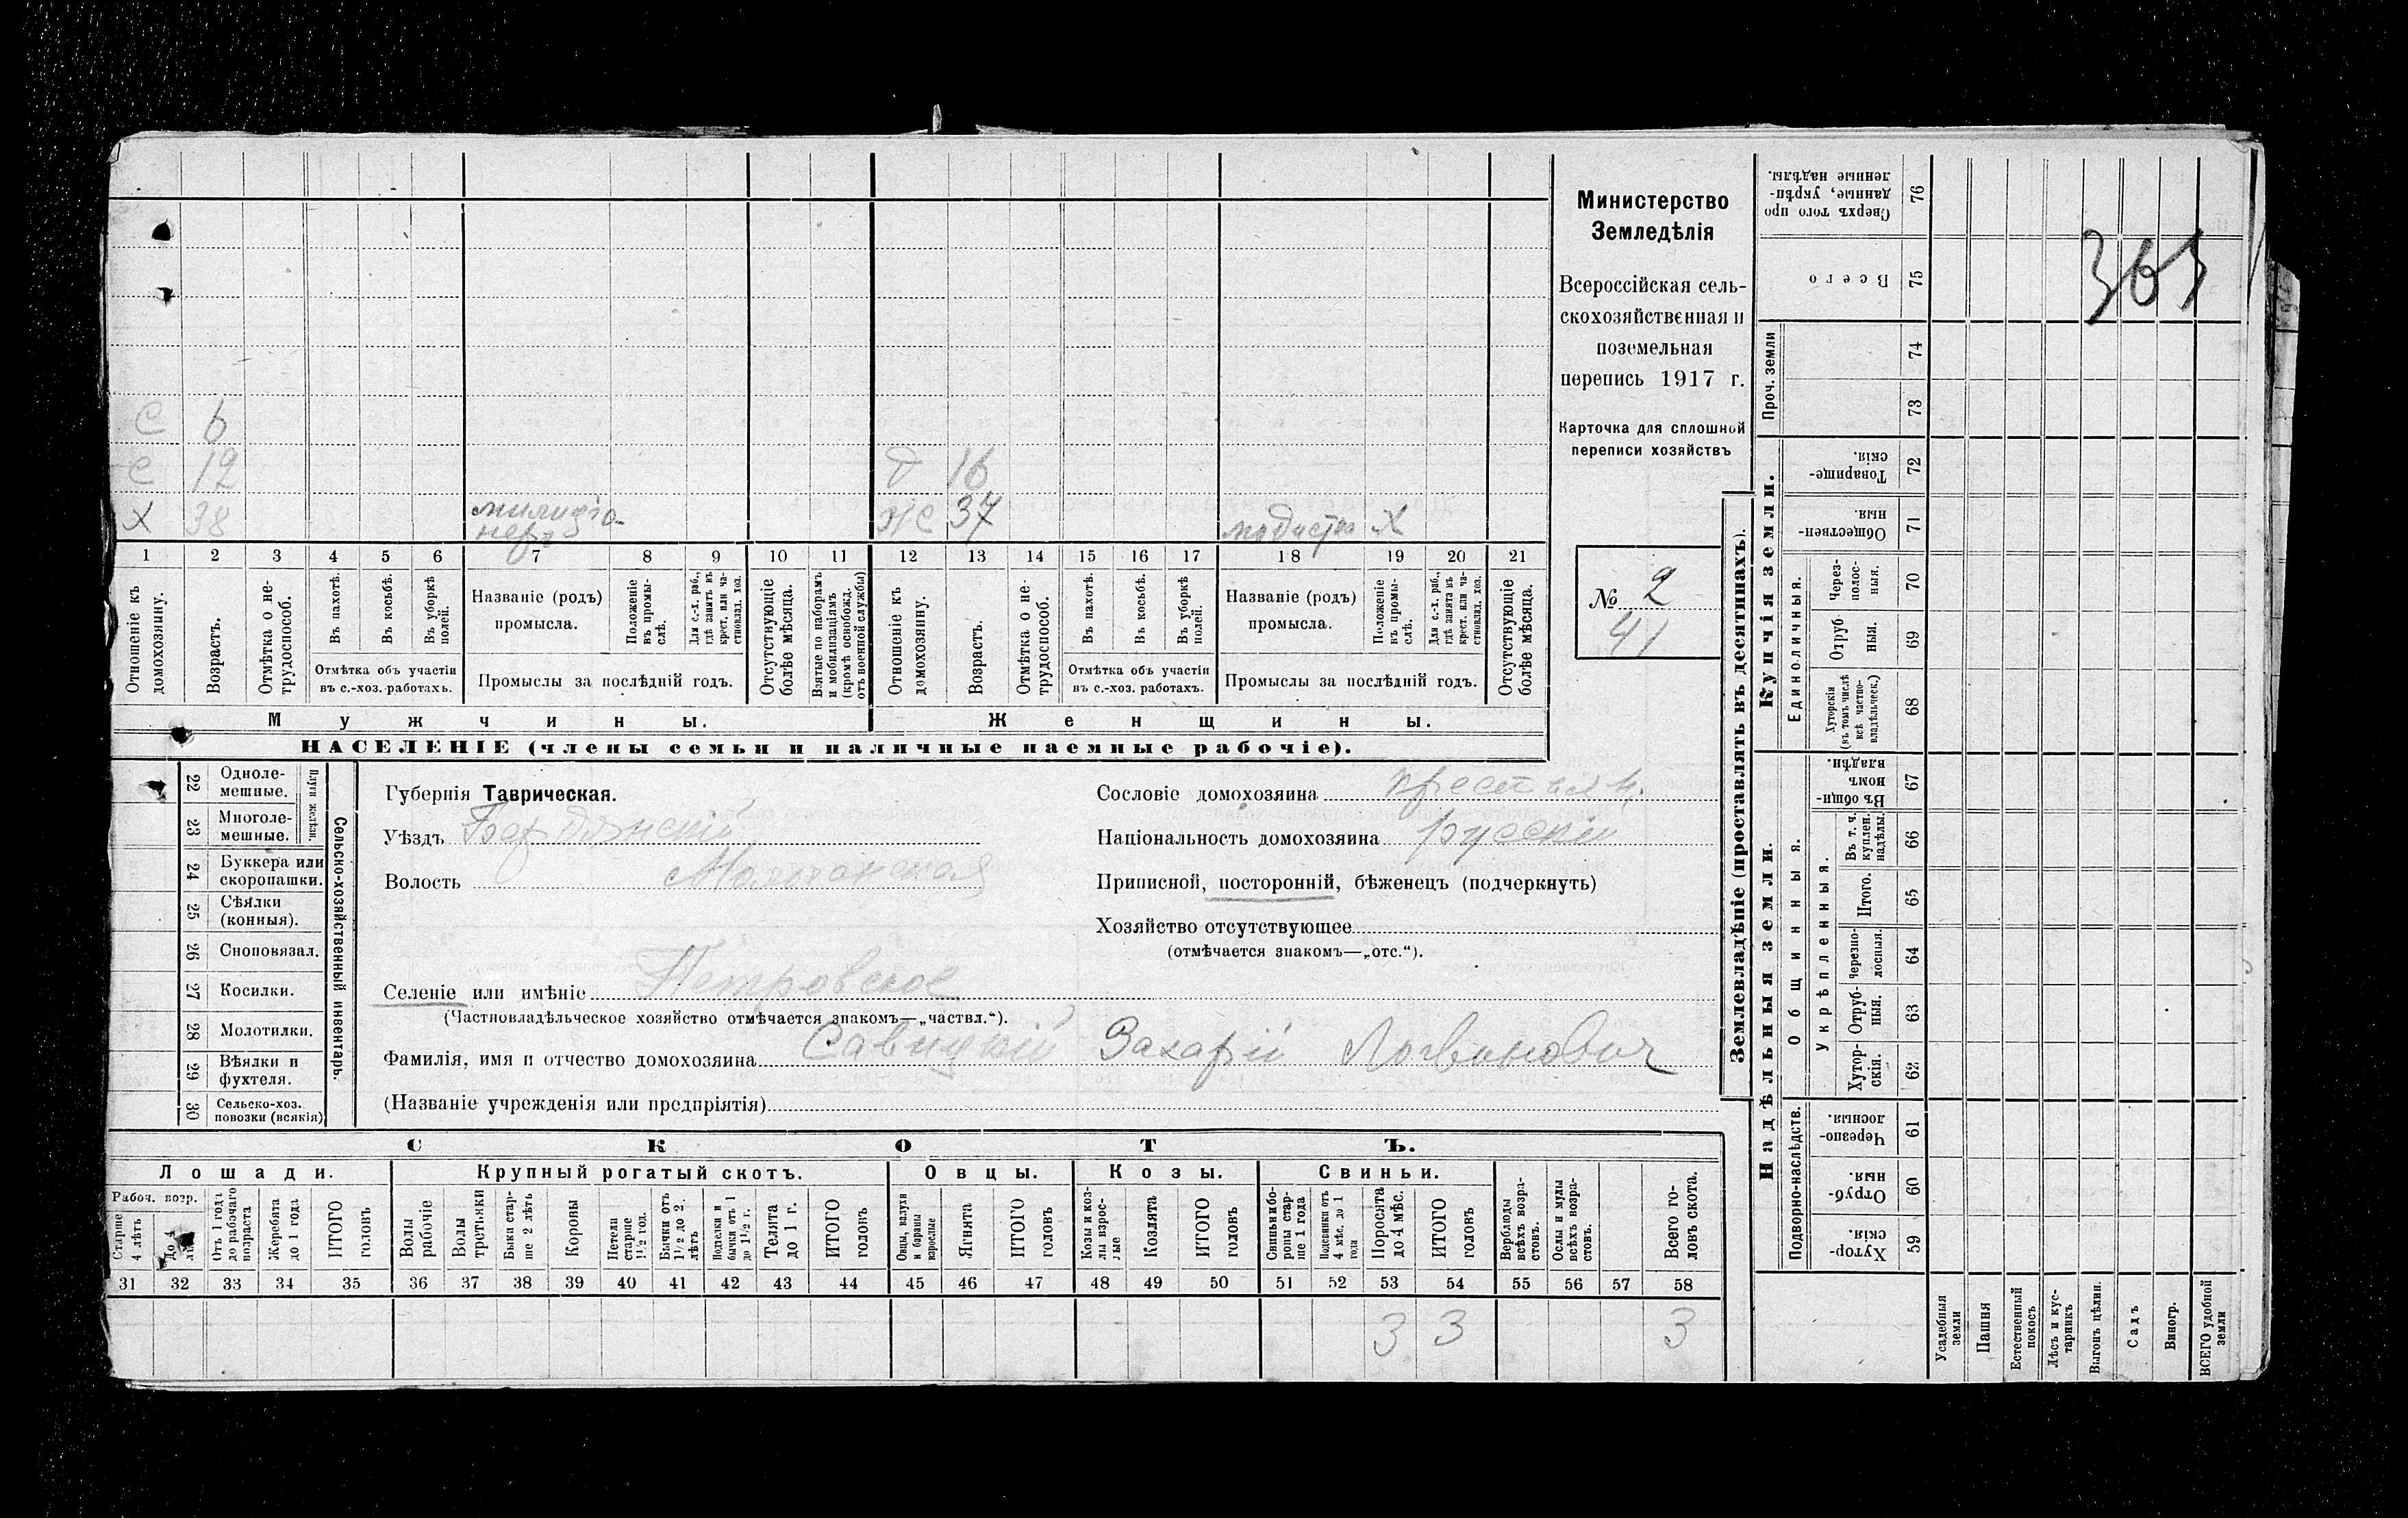 С 6
С 12
Д 16
Х 38 милиціо-
неръ
Ж 37 модистка Х
1 2 3 4 5 6 7 8 9 10 11 12 13 14 15 16 17 18 19 20 21
Отношеніе къ домохозяину.
Возрастъ.
Отмѣтка о не-трудоспособ.
Въ пахотѣ.
Въ косьбѣ.
Въ уборкѣ полей.
Отмѣтка объ участіи въ с.-хоз. работахъ.
Названіе (родъ) промысла.
Положеніе въ промы-слѣ.
Для с.-х. раб., гдѣ занятъ въ крест. или ча-стновлад. хоз.
Промыслы за послѣдній годъ.
Отсутствующіе болѣе мѣсяца.
Взятые по наборамъ и мобилизаціямъ (кромѣ освобожд. отъ военной службы)
Отношеніе къ домохозяину.
Возрастъ.
Отмѣтка о не-трудоспособ.
Въ пахотѣ.
Въ косьбѣ.
Въ уборкѣ полей.
Отмѣтка объ участіи въ с.-хоз. работахъ.
Названіе (родъ) промысла.
Положеніе въ промы-слѣ.
Для с.-х. раб., гдѣ занята въ крест. или ча-стновлад. хоз.
Промыслы за послѣдній годъ.
Отсутствующіе болѣе мѣсяца.
Мужчины.
Женщины.
НАСЕЛЕНІЕ (члены семьи и наличные наемные рабочіе).
Министерство
Земледѣлія
Всероссійская сель-
скохозяйственная и
поземельная
перепись 1917 г.
Карточка для сплошной
переписи хозяйствъ
№ 2
41
22 Одноле-мешные.
23 Многоле-мешные.
Плуги желѣзн.
24 Буккера или скоропашки.
25 Сѣялки (конныя).
26 Сноповязал.
27 Косилки.
28 Молотилки.
29 Вѣялки и фухтеля.
30 Сельско-хоз. повозки (всякія)
Сельско-хозяйственный инвентарь.
Губернія Таврическая.
Уѣздъ Бердянскій
Волость Молочанская
Селеніе или имѣніе Петровское
(Частновладѣльческое хозяйство отмѣчается знакомъ—„частвл.“).
Фамилія, имя и отчество домохозяина Савицкій Захарій Логвинович
(Названіе учрежденія или предпріятія)
Сословіе домохозяина крестьян.
Національность домохозяина русскій
Приписной, посторонній, бѣженецъ (подчеркнуть)
Хозяйство отсутствующее
(отмѣчается знакомъ—„отс.“).
СКОТЪ.
Лошади.
Крупный рогатый скотъ.
Овцы.
Козы.
Свиньи.
Рабоч. возр.
Старше 4 лѣтъ
До 4
Отъ 1 года до рабочаго возраста
Жеребята до 1 года
ИТОГО головъ
Волы рабочіе
Волы третьяки
Быки стар-ше 2 лѣтъ
Коровы
Нетели старше 1½ год.
Бычки отъ 1½ до 2. лѣтъ
Подтелки и бычки отъ 1 до 1½ г.
Телята до 1 г.
ИТОГО головъ
Овцы, валухи и бараны взрослые
Ягнята
ИТОГО головъ
Козы и коз-лы взрос-лые
Козлята
ИТОГО головъ
Свиньи и бо-ровы стар-ше 1 года
Подсвинки отъ 4 мѣс. до 1 года
Поросята до 4 мѣс.
ИТОГО головъ
Верблюды всѣхъ возра-стовъ.
Ослы и мулы всѣхъ возра-стовъ.
Всего го-ловъ скота.
31 32 33 34 35 36 37 38 39 40 41 42 43 44 45 46 47 48 49 50 51 52 53 54 55 56 57 58
3 3 3
Землевладѣніе (проставлять въ десятинахъ).
Купчія земли.
Надѣльныя земли.
Сверхъ того про данные, укрѣп-ленные надѣлы. 76
Всего 75
Проч. земли
74
73
Товарище-скія. 72
Обществен-ныя. 71
Единоличныя.
Через-полос-ныя. 70
Отруб ныя. 69
Хуторскія (въ томъ числѣ всѣ частно-владѣльческ.) 68
Общинныя.
Въ общи-номъ владѣн. 67
Укрѣпленныя.
Въ т. ч. куплен. надѣлы. 66
Итого. 65
Черезпо-лосныя. 64
Отруб-ныя. 63
Хутор-скія. 62
Подворно-наслѣдств.
Черезпо-лосныя 61
Отруб-ныя. 60
Хутор-скія. 59
Усадебныя земли
Пашня
Естественный покосъ
Лѣсъ и кус-тарникъ
Выгонъ цѣлин.
Садъ
Виногр.
ВСЕГО удобной земли